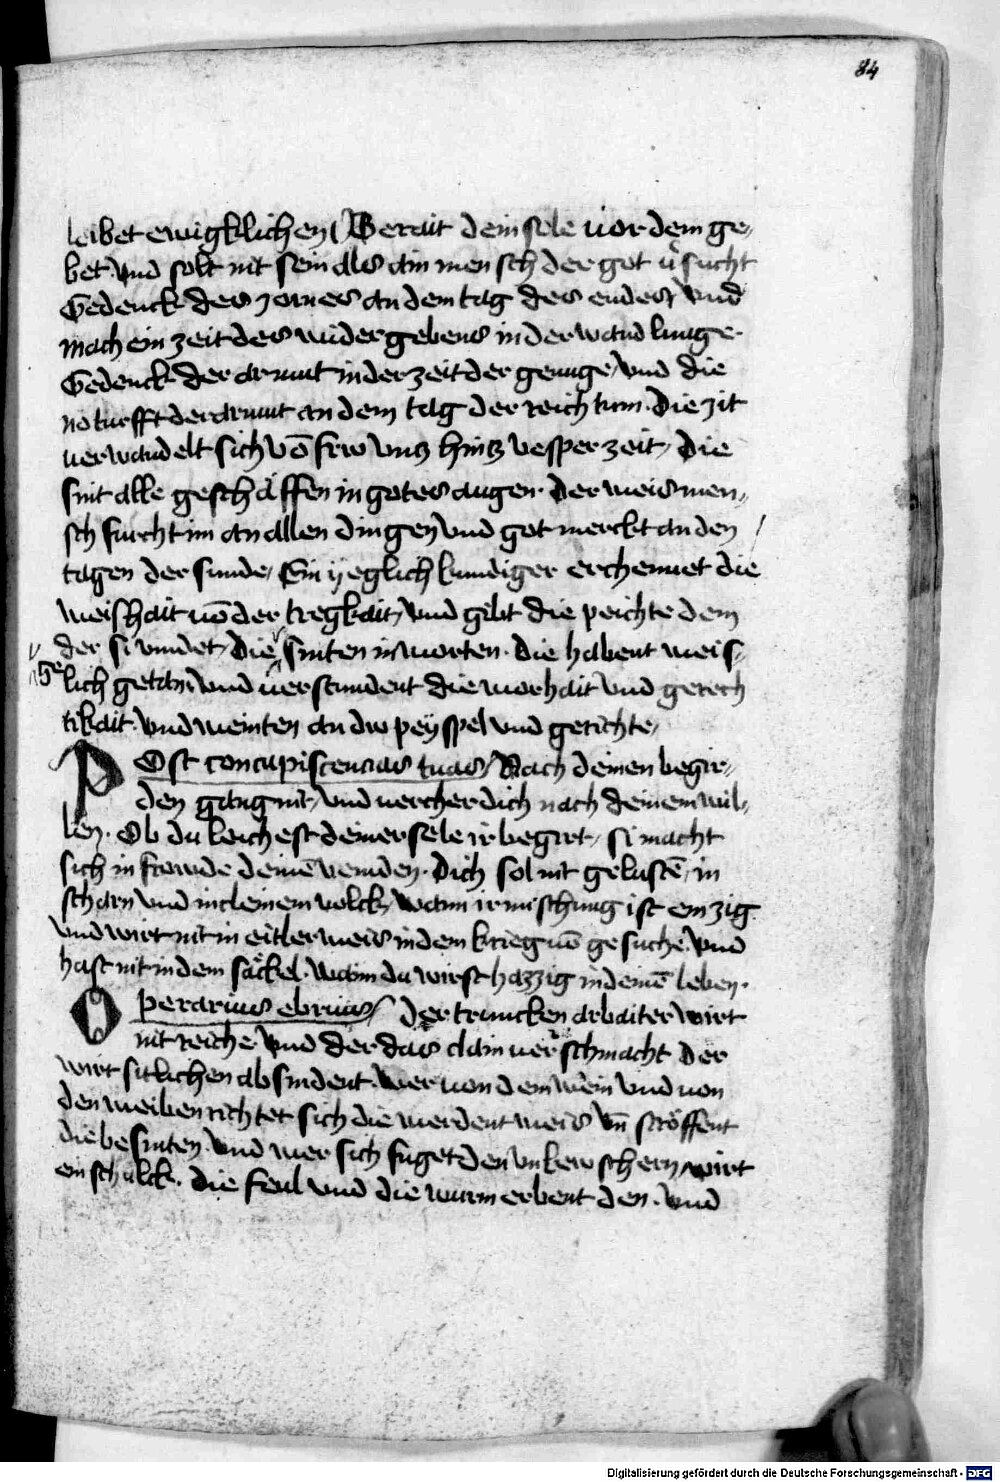 84
leibet ewigklichen Berait dein sele vor dem ge„
bet. vnd solt nit sein als ain mensch der got ũsucht
Gedenck des zornes an dem tag des endes vnd
mach ein zeit des widergebens in der wandlunge.
Gedenck der armut in der zeit der genuge vnd die
noturfft der armut an dem tag der reichtum. Die zit
verwandelt sich võ frw vntz hintz vesper zeit, Die
sint alle geschäffen in gotes augen. Der weis men„
sch furcht im an allen dingen vnd got merckt an den
tagen der sunde, Ein yeglich kundiger erchennet die
weishait võ der tregkait, vnd gibt die peichte dem
der si vindet, Die sinten in worten. Die habent weis„
lich getan vnd verstundent die worhait vnd gerech
tikait. vnd weinten an dw peyspel vnd gerichte,
Post concupiscencias tuas, Nach deinen begir„
den gang nit, vnd vercher dich nach deinem wil„
len. Ob du leichest deiner sele ir begirt, si macht
sich in frewde deinē veinden. Dich sol nit gelustē, in
scharn vnd in cleinem volck, wann ir mischung ist einzig
vnd wirt nit in eitler weis in dem krieg võ gesuche vnd
hast nit in dem säckel. Wann du wirst hazzig in deinē leben.
Operarius ebrius, Der truncken arbaiter wirt
nit reiche vnd der das clain verschmacht Der
wirt sitlichen absindent. wer von dem wein vnd von
den weiben richtet sich die werdent weis vñ ströffent
die besinten. vnd wer sich fuget den vnkewschern, wirt
ein schalck. Die feul vnd die wurm erbent den. vnd
Digitalisierung gefördert durch die Deutsche Forschungsgemeinschaft - DFG